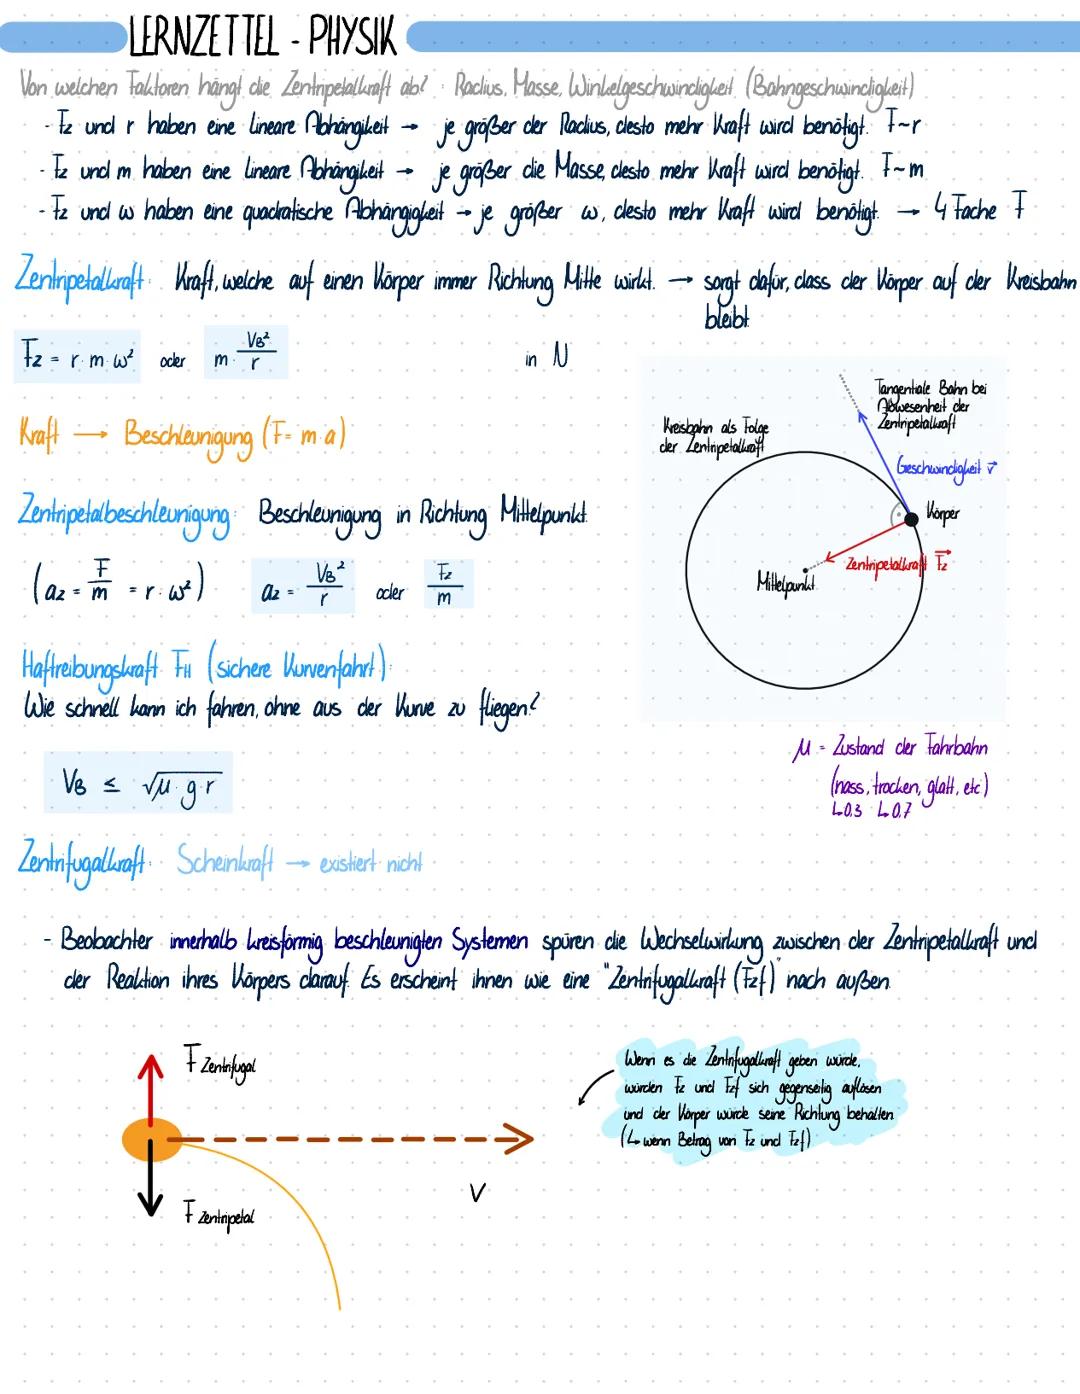 LERNZETTEL - PHYSIK
Von welchen Faktoren hängt die Zentripetalkraft ab? : Radius, Masse, Winkelgeschwindigkeit (Bahngeschwindigkeit)
- Fz und r haben eine lineare Abhängikeit → je größer der Radius, desto mehr Kraft wird benötigt. F~r
- Fz und m haben eine lineare Abhängikeit → je größer die Masse, desto mehr Kraft wird benötigt. F~m
- Fz und ω haben eine quadratische Abhängigkeit → je größer ω, desto mehr Kraft wird benötigt. → 4 Fache F
Zentripetalkraft: Kraft, welche auf einen Körper immer Richtung Mitte wirkt. → sorgt dafür, dass der Körper auf der Kreisbahn
bleibt
Fz = r · m · ω² oder m · VB²/r in N
Kraft → Beschleunigung (F = m · a)
Zentripetalbeschleunigung: Beschleunigung in Richtung Mittelpunkt.
(az = F/m = r · ω²) az = VB²/r oder Fz/m
Kreisbahn als Folge
der Zentripetalkraft
Tangentiale Bahn bei
Abwesenheit der
Zentripetalkraft
Geschwindigkeit v⃗
Körper
Zentripetalkraft F⃗z
Mittelpunkt
Haftreibungskraft FH (sichere Kurvenfahrt):
Wie schnell kann ich fahren, ohne aus der Kurve zu fliegen?
VB ≤ √μ · g · r
μ = Zustand der Fahrbahn
(nass, trocken, glatt, etc)
↳0,3 ↳0,7
Zentrifugalkraft: Scheinkraft → existiert nicht
- Beobachter innerhalb kreisförmig beschleunigten Systemen spüren die Wechselwirkung zwischen der Zentripetalkraft und
der Reaktion ihres Körpers darauf. Es erscheint ihnen wie eine "Zentrifugalkraft (Fzf)" nach außen.
F Zentrifugal
V
F Zentripetal
Wenn es die Zentrifugalkraft geben würde,
würden Fz und Fzf sich gegenseitig auflösen
und der Körper würde seine Richtung behalten
(↳ wenn Betrag von Fz und Fzf)